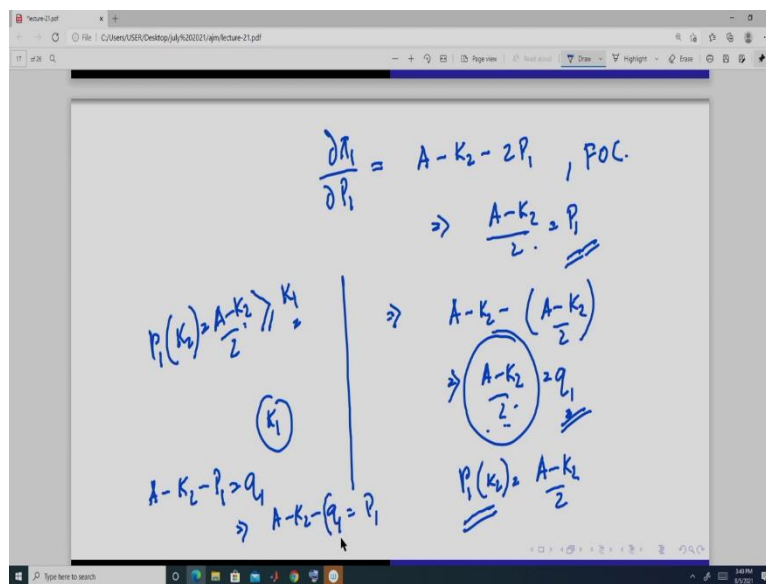 *lecture-21.pdf
File | C:/Users/USER/Desktop/july%202021/ajm/lecture-21.pdf
17 of 28
Page view
Read aloud
Draw
Highlight
Erase
∂π₁/∂P₁ = A-K₂-2P₁ , FOC.
⇒ (A-K₂)/2 = P₁
P₁(K₂) = (A-K₂)/2 ⩾ K₁
⇒ A-K₂-((A-K₂)/2)
K₁
⇒ (A-K₂)/2 = q₁
A-K₂-P₁ = q₁
P₁(K₂) = (A-K₂)/2
⇒ A-K₂-(q₁ = P₁
Type here to search
3:40 PM
8/5/2021